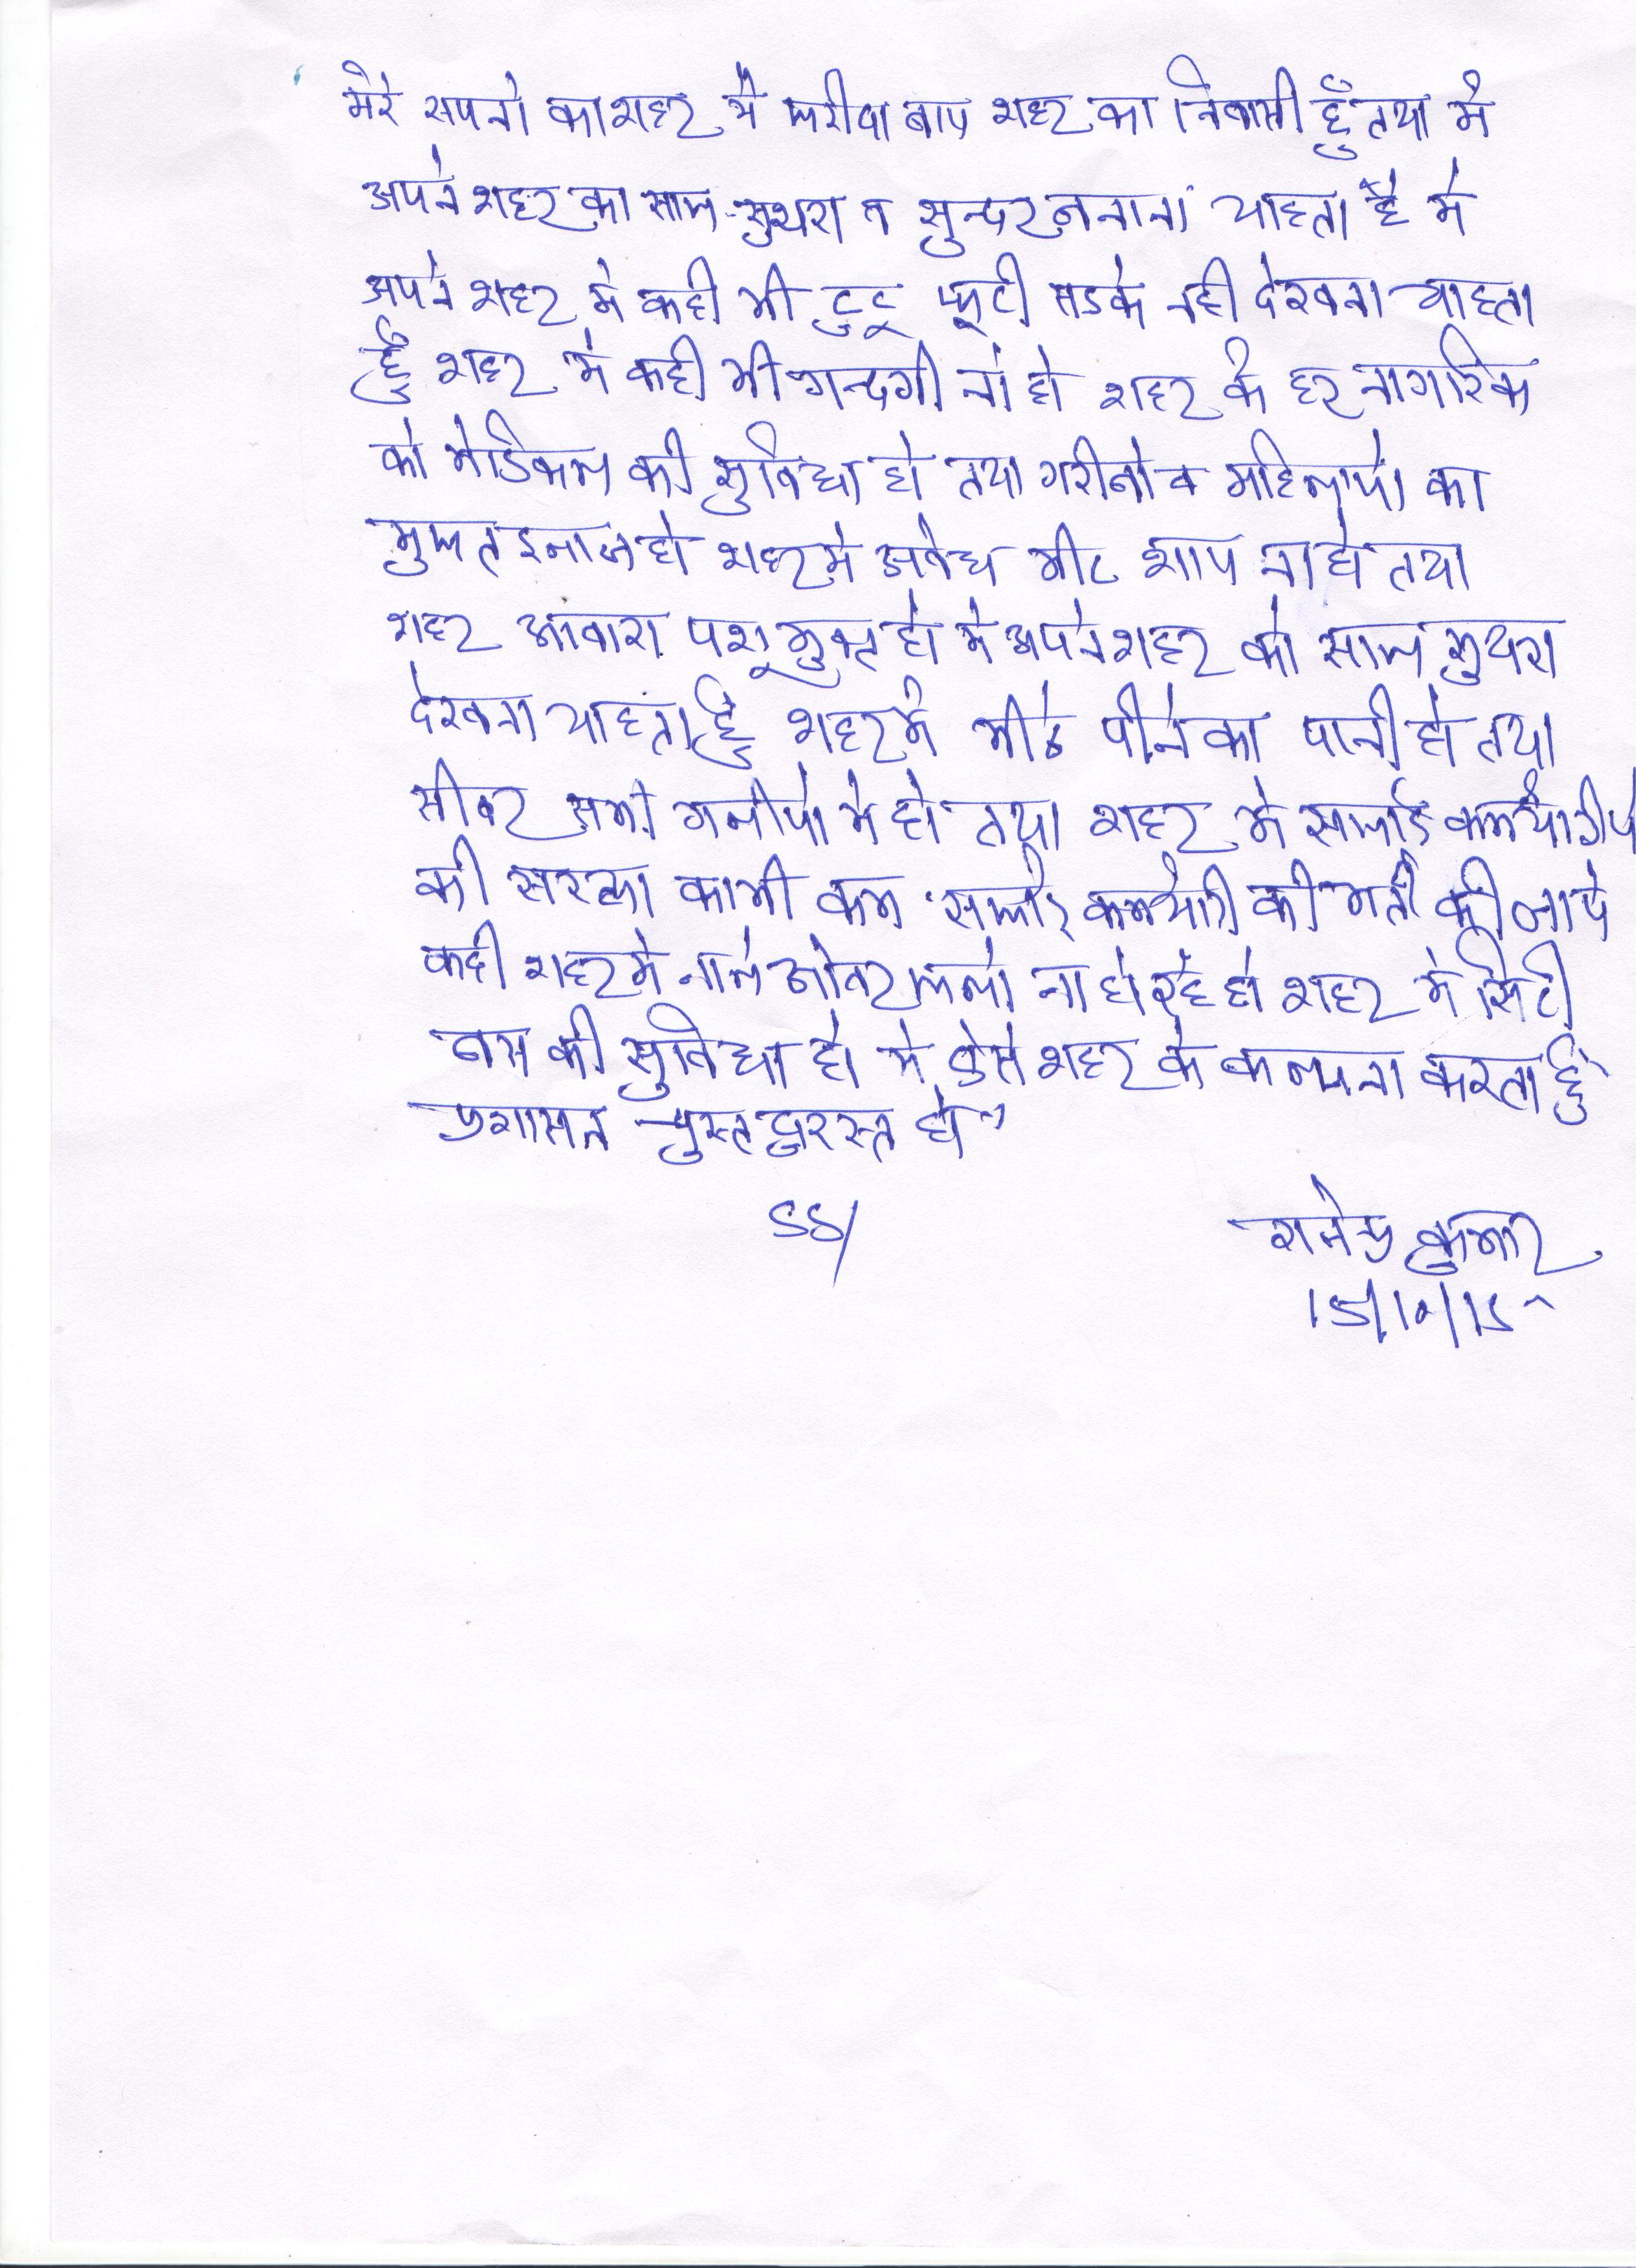 मेरे सपनो का शहर मै फरीदाबाद शहर का निवासी हुँ तथा मै
अपने शहर को साफ सुथरा व सुन्दर बनाना चाहता है मे
अपने शहर मे कही भी टुटू फूटी सडके नही देखना चाहता
हुँ शहर मे कही भी गन्दगी ना हो शहर के हर नागरिक
को मेडिकल की सुविधा हो तथा गरीबो व महिलायो का
मुफत इलाज हो शहर मे अवैध मीट शाप ना हो तथा
शहर आवारा पशू मुक्त हो मे अपने शहर को साफ सुथरा
देखना चाहता हुँ शहर मै मीठे पीने का पानी हो तथा
सीवर सभी गलीयो मे हो तथा शहर मे सफाई कर्मचारीयो
की काफी कम सफाई कर्मचारी की भर्ती की जाये
कही शहर मे नाले ओवर फलो ना हो रहे हो शहर मे सिटी
बस की सुविधा हो मे ऐसे शहर के कल्पना करता हुँ
प्रशासन चुस्त दुरस्त हो
Sd/
राजेन्द्र कुमार
15/10/15